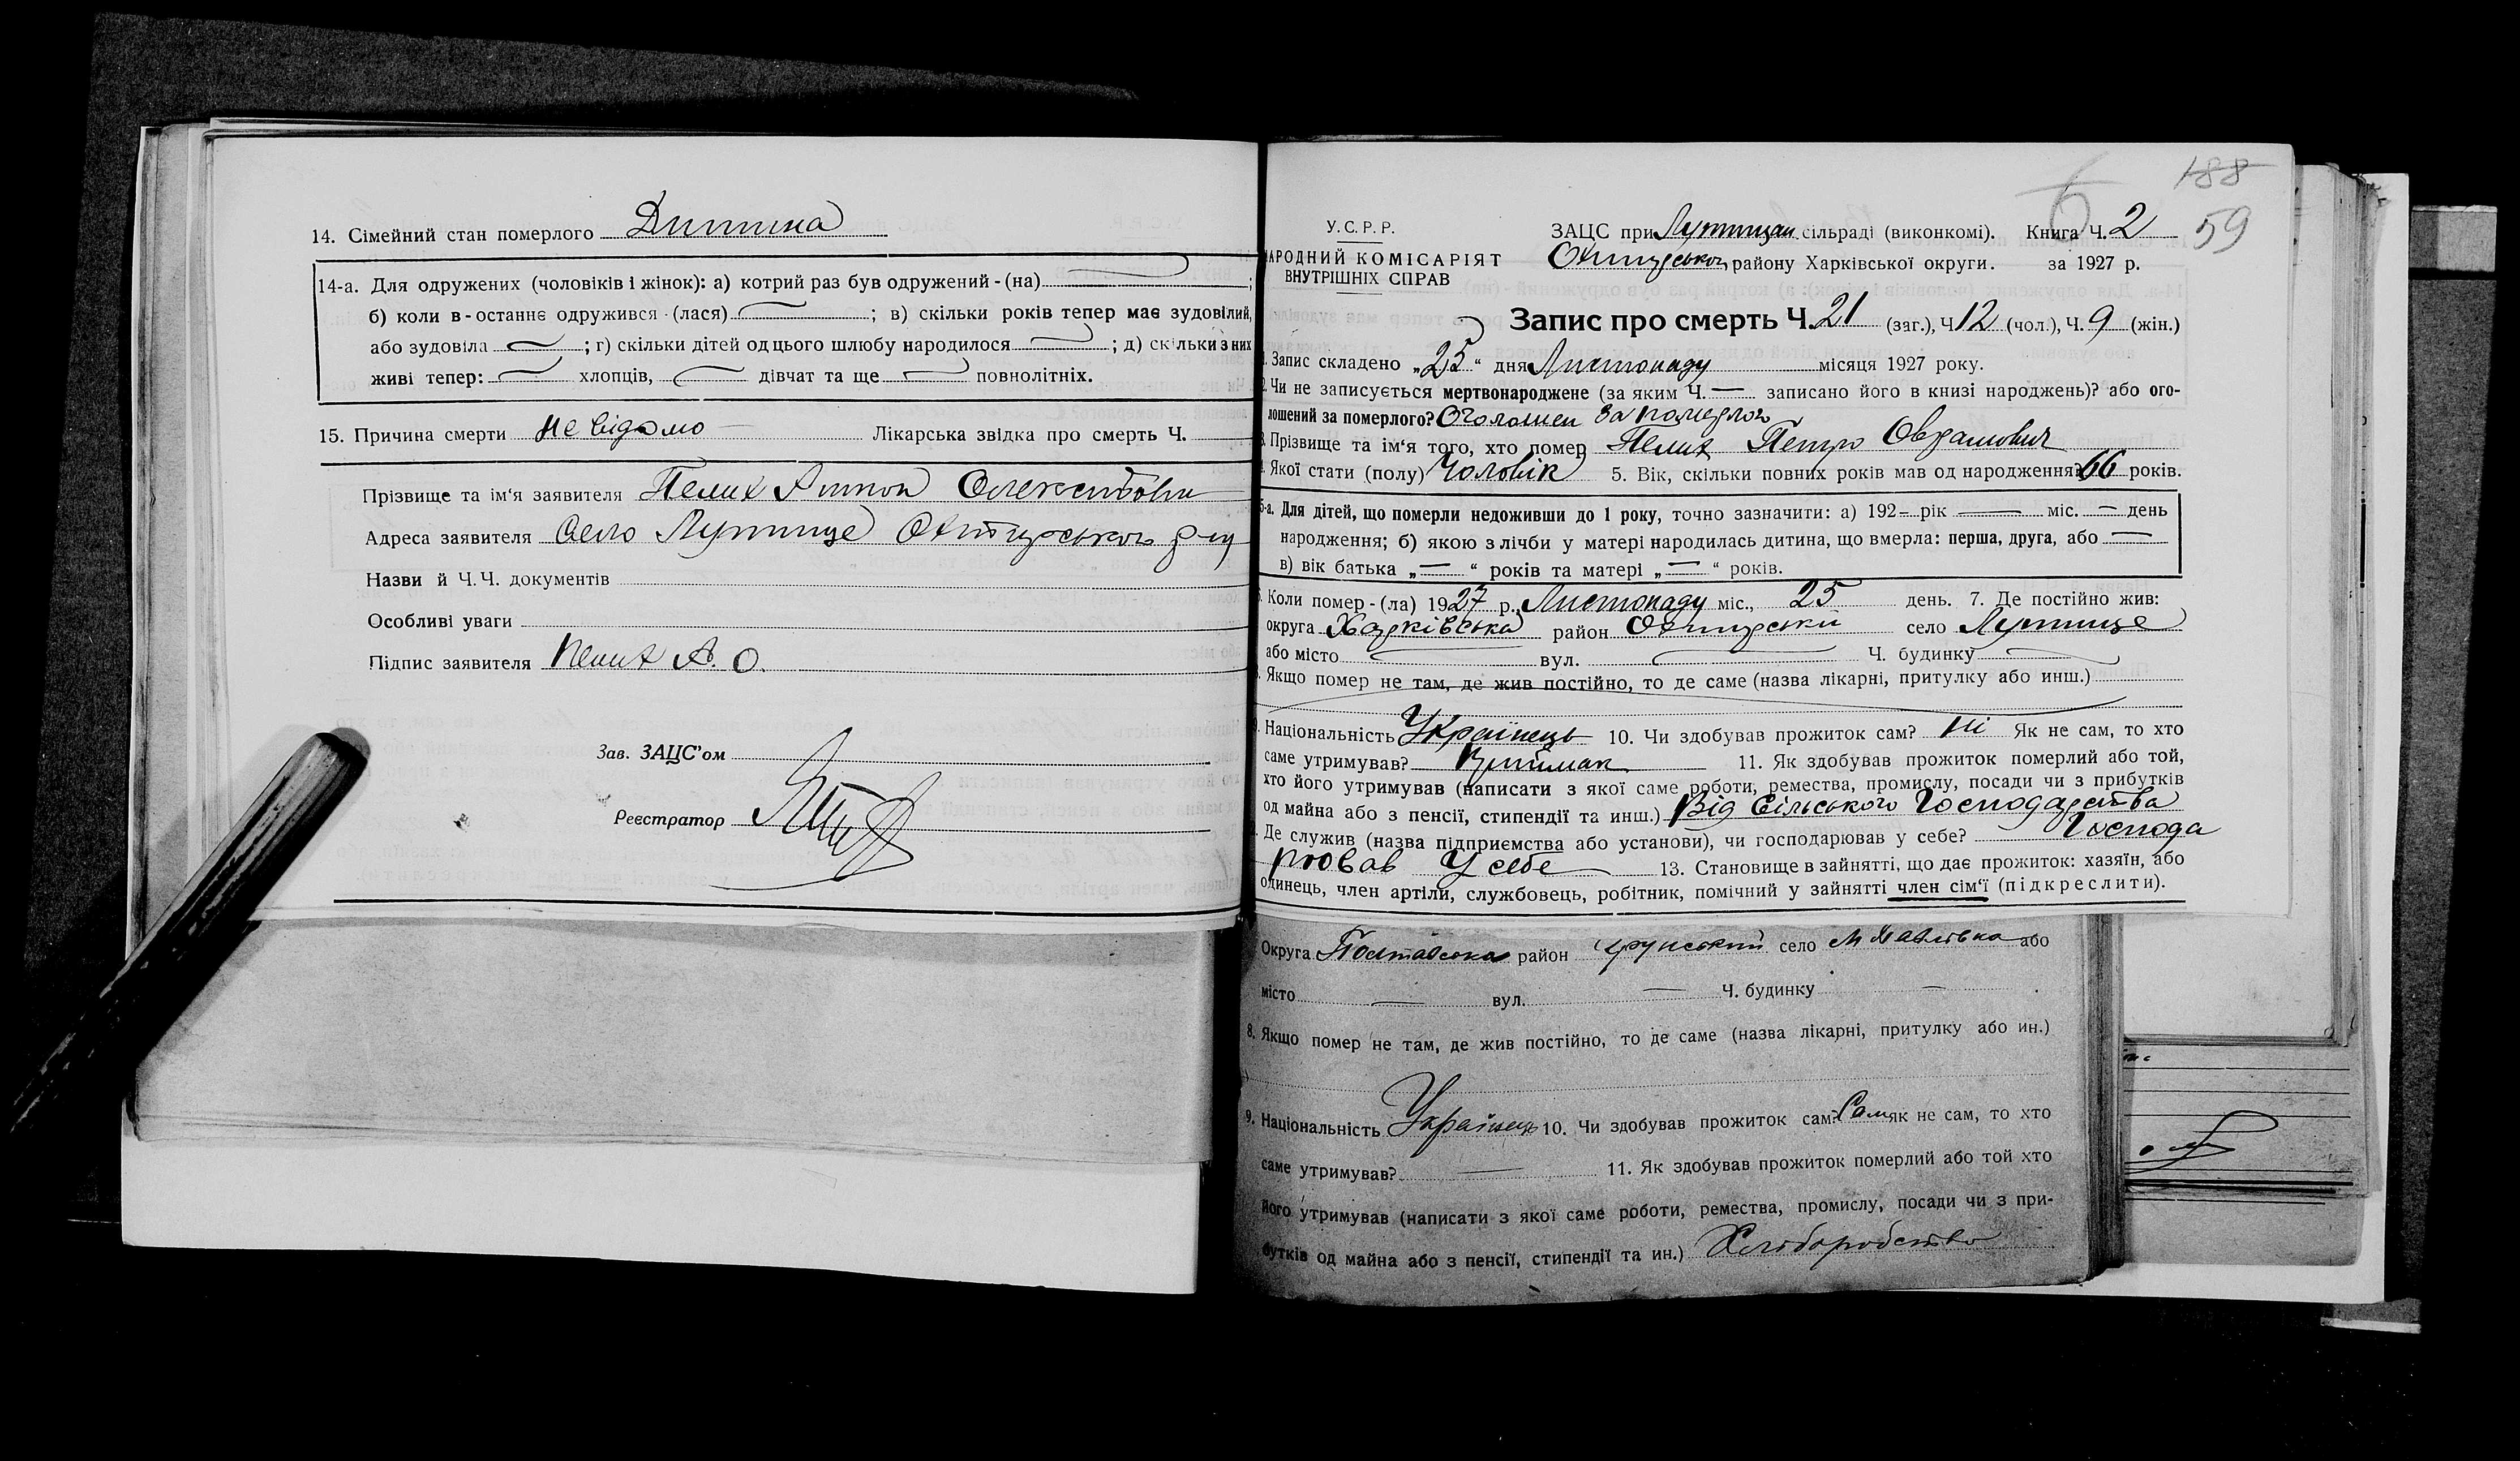 14. Сімейний стан померлого Дитина
14-а. Для одружених (чоловіків і жінок): а) котрий раз був одружений - (на) ;
б) коли в - останнє одружився - (лася) ; в) скільки років тепер має зудовілий,
або зудовіла ; г) скільки дітей од цього шлюбу народилося ; д) скільки з них
живі тепер: хлопців, дівчат та ще повнолітніх.
15. Причина смерти не відомо Лікарська звідка про смерть Ч.
Прізвище та ім'я заявителя Пелих Антон
Адреса заявителя село Лутище Охтирського р-ну
Назви й Ч.Ч. документів
Особливі уваги
Підпис заявителя Пелих А. О.
Зав. ЗАЦС'ом
Реєстратор
188
59
6
У.С.Р.Р.
НАРОДНИЙ КОМІСАРІЯТ
ВНУТРІШНІХ СПРАВ
ЗАЦС при Лутищан. сільраді (виконкомі). Книга Ч. 2
Охтирськог району Харківської округи. за 1927 р.
Запис про смерть Ч. 21 (заг.), Ч 12 (чол.), Ч. 9 (жін.)
1. Запис складено „25“ дня Листопаду місяця 1927 року.
2. Чи не записується мертвонароджене (за яким Ч. — записано його в книзі народжень)? або ого-
лошений за померлого? Оголошен за померлого
3. Прізвище та ім'я того, хто помер Пелих Петро
4. Якої стати (полу) Чоловік 5. Вік, скільки повних років мав од народження? 66 років.
5-а. Для дітей, що померли недоживши до 1 року, точно зазначити: а) 192– рік — міс. — день
народження; б) якою з лічби у матері народилась дитина, що вмерла: перша, друга, або —
в) вік батька „—“ років та матері „—“ років.
6. Коли помер - (ла) 1927 р., Листопаду міс., 25 день. 7. Де постійно жив:
округа Харківська район Охтирський село Лутище
або місто вул. Ч. будинку
8. Якщо помер не там, де жив постійно, то де саме (назва лікарні, притулку або инш.)
9. Національність Українець 10. Чи здобував прожиток сам? Ні Як не сам, то хто
саме утримував? 11. Як здобував прожиток померлий або той,
хто його утримував (написати з якої саме роботи, ремества, промислу, посади чи з прибутків
од майна або з пенсії, стипендії та инш.) Від Сільського Господарства
12. Де служив (назва підприємства або установи), чи господарював у себе? Господа
рював У себе 13. Становище в зайнятті, що дає прожиток: хазяїн, або
одинець, член артіли, службовець, робітник, помічний у зайнятті член сім'ї (підкреслити).
Округа Полтавська район село або
місто — вул. — Ч. будинку —
8. Якщо помер не там, де жив постійно, то де саме (назва лікарні, притулку або ин.)
9. Національність Українець 10. Чи здобував прожиток сам? Сам як не сам, то хто
саме утримував? — 11. Як здобував прожиток померлий або той хто
його утримував (написати з якої саме роботи, ремества, промислу, посади чи з при-
бутків од майна або з пенсії, стипендії та ин.) Хліборобство